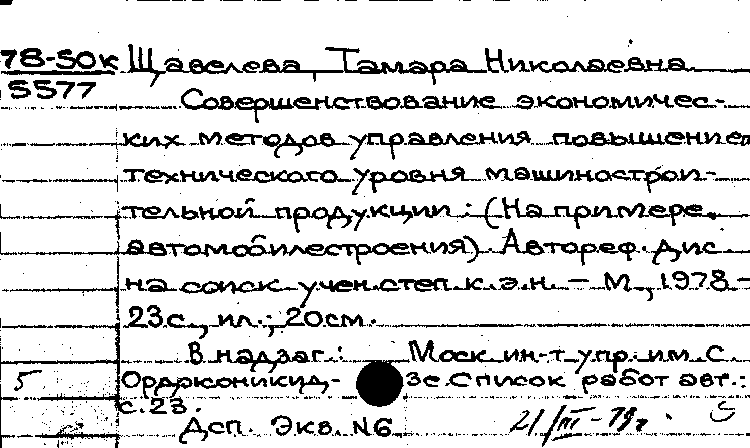 78-50к Щавелева, Тамара Николаевна
5577
Совершенствование экономичес-
ких методов управления повышением
технического уровня машинострои-
тельной продукции: (На примере
автомобилестроения). Автореф. дис
на соиск учен.степ.к.э.н. – М., 1978-
23с., ил.; 20см.
В надзаг.: Моск ин-т упр. им С
5 Орджоникид- зе.Список работ авт.:
с.23.
Дсп. Экз. №6 21/III-79г.